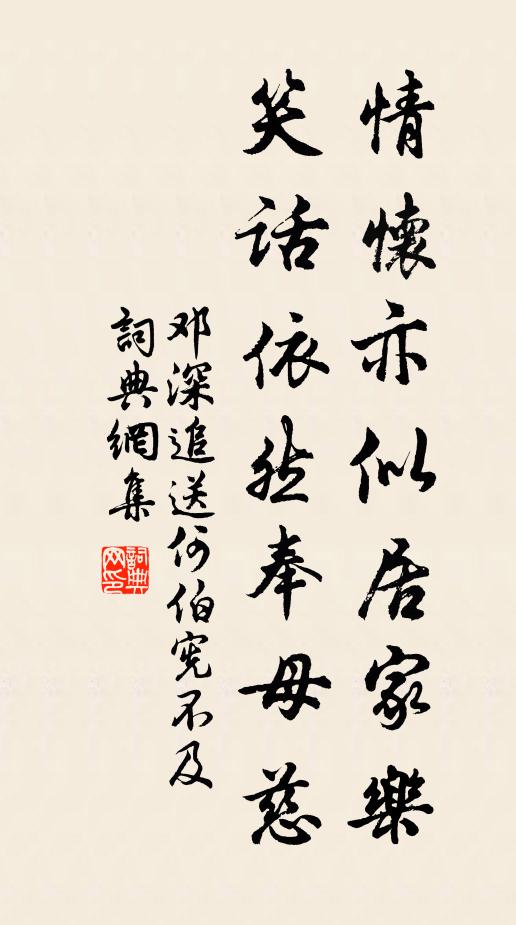 情懷亦似居家樂
笑話依然奉母慈
邓深追送何伯宪不及
詞典網集
詞典网印